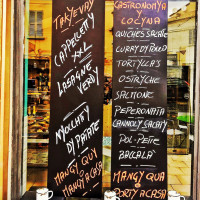 TAKEVAY
CAPPELLETTY
XXL
LASAGNE
VERDY
NYOCHETY
DY PATATE
MANGY QUY
O
MANGY A CASA
GASTRONOMYA
Y
COCYNA
QUICHES SALATE
CURRY DY POLLO
TORTYLLA'S
OSTRYCHE
SALMONE
PEPERONATA
CANNOLY SALATY
POL-PETTE
BACCALÀ
MANGY QUA
O
PORTY A CASA